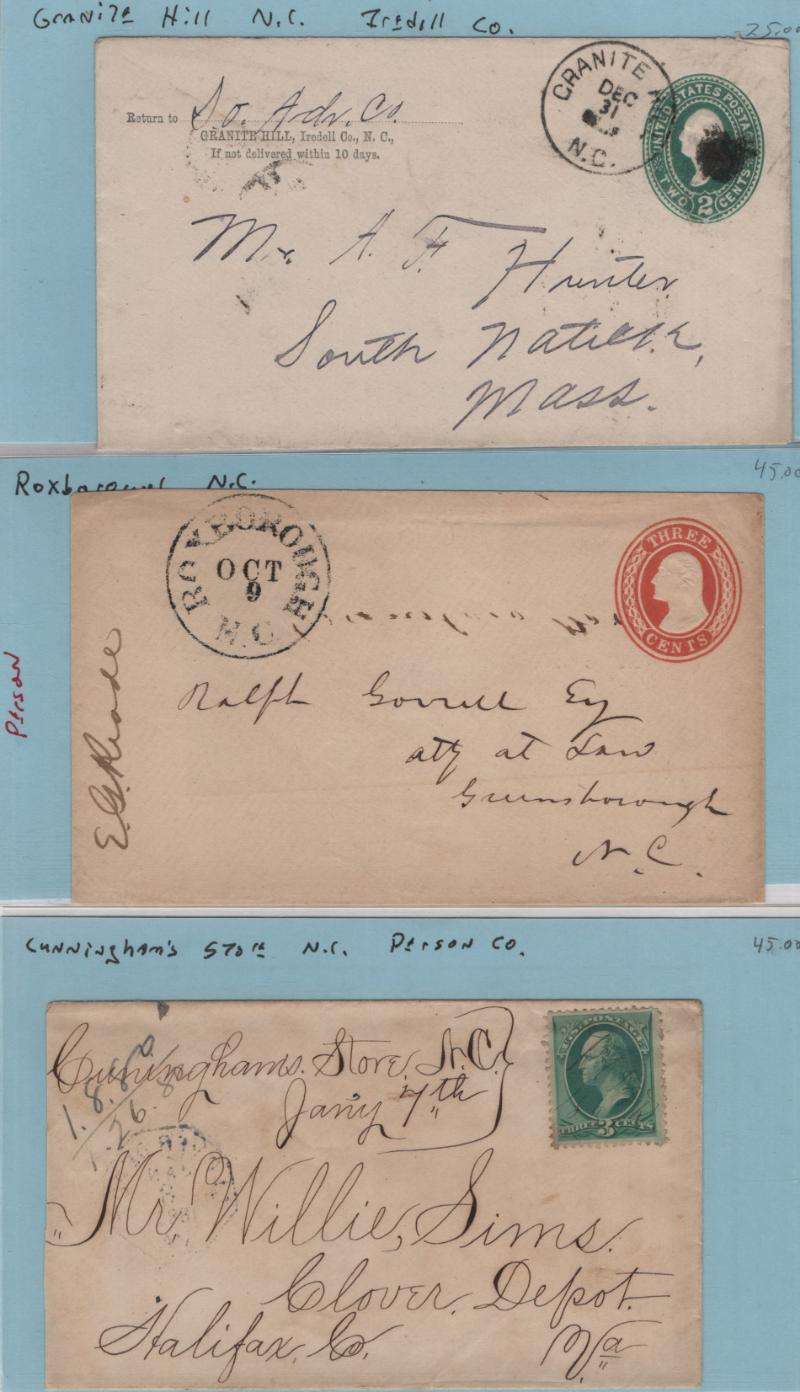 Granite Hill N.C. Iredell Co.
25.00
Return to So. Adv. Co.
GRANITE HILL, Iredell Co., N. C.,
If not delivered within 10 days.
GRANITE
DEC
31
N.C.
UNITED STATES POSTAGE
TWO 2 CENTS
Mr. A. F. Hunter
South Natick,
Mass.
Roxborough N.C.
45.00
Person
ROXBOROUGH
OCT
9
N.C.
THREE
CENTS
E. G. Reade
Ralph Gorrell Esq
atty at Law
Greensborough
N.C.
Cunningham's Store N.C. Person Co.
45.00
Cuninghams. Store, N.C.
Jany 7th
1.8.80
1.26.8
U.S. POSTAGE
THREE 3 CENTS
Mr. Willie, Sims.
Clover, Depot.
Halifax. Co. Va